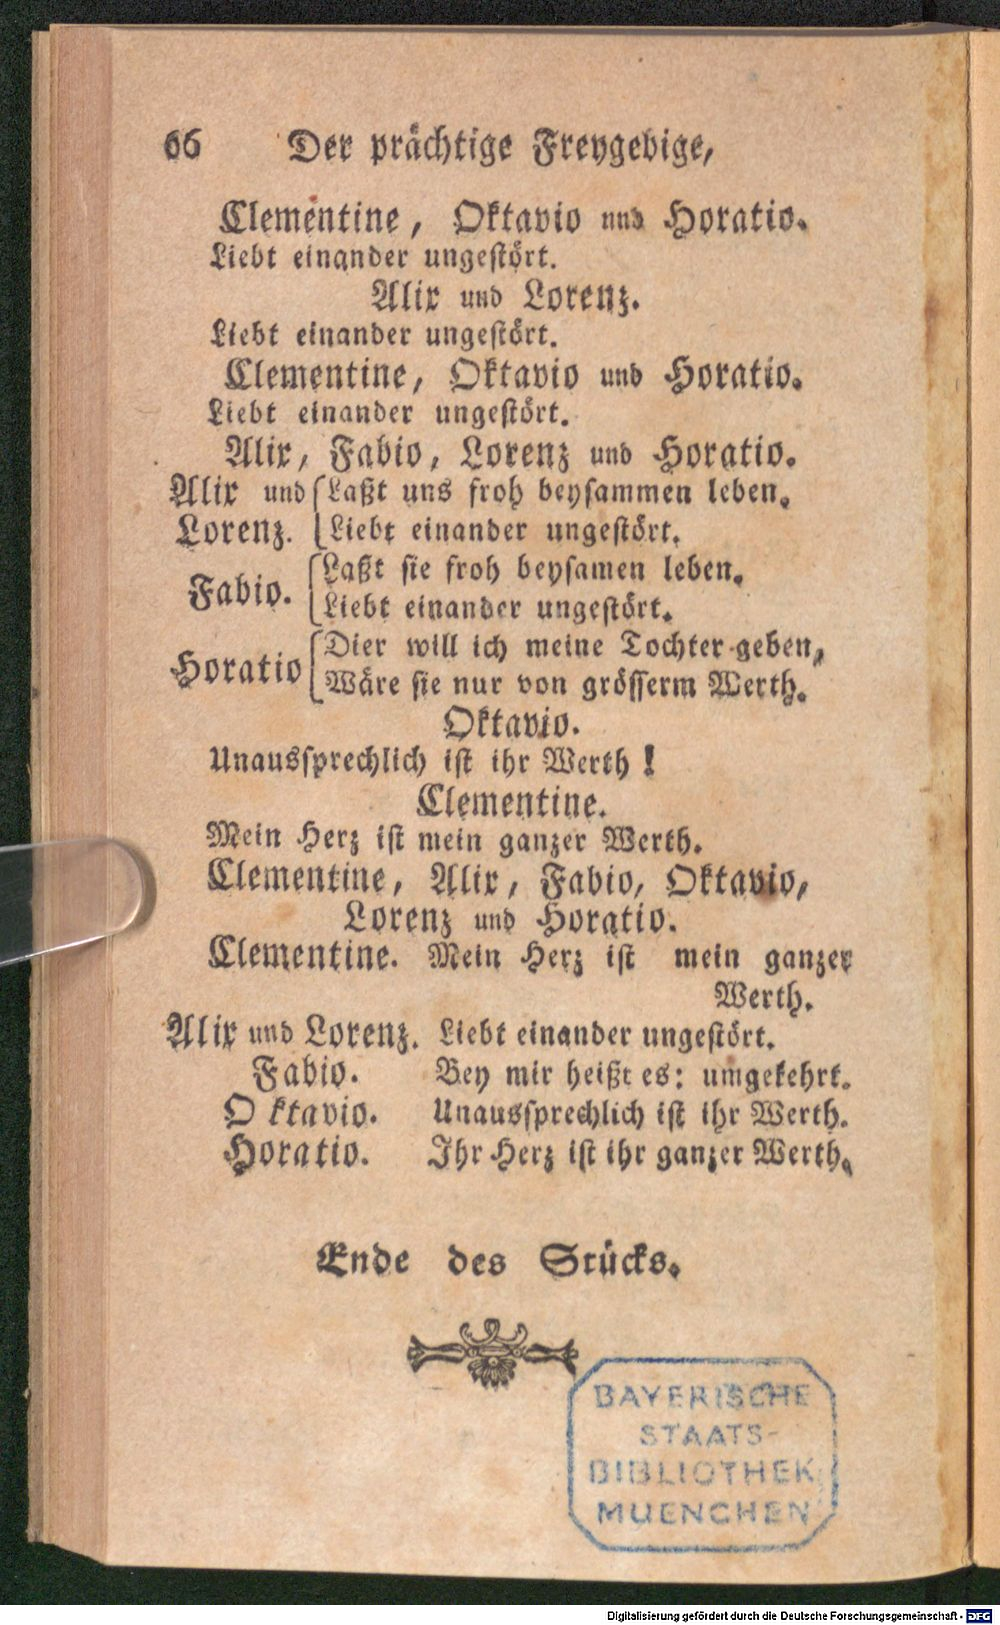 66 Der prächtige Freygebige,
Clementine, Oktavio und Horatio.
Liebt einander ungestört.
Alix und Lorenz.
Liebt einander ungestört.
Clementine, Oktavio und Horatio.
Liebt einander ungestört.
Alix, Fabio, Lorenz und Horatio.
Alix und Laßt uns froh beysammen leben.
Lorenz. Liebt einander ungestört.
Laßt sie froh beysamen leben.
Fabio.
Liebt einander ungestört.
Dier will ich meine Tochter geben,
Horatio
Wäre sie nur von grösserm Werth.
Oktavio.
Unaussprechlich ist ihr Werth!
Clementine.
Mein Herz ist mein ganzer Werth.
Clementine, Alix, Fabio, Oktavio,
Lorenz und Horatio.
Clementine. Mein Herz ist mein ganzer
Werth.
Alix und Lorenz. Liebt einander ungestört.
Fabio. Bey mir heißt es: umgekehrt.
Oktavio. Unaussprechlich ist ihr Werth.
Horatio. Ihr Herz ist ihr ganzer Werth.
Ende des Stücks.
BAYERISCHE
STAATS-
BIBLIOTHEK
MUENCHEN
Digitalisierung gefördert durch die Deutsche Forschungsgemeinschaft - DFG